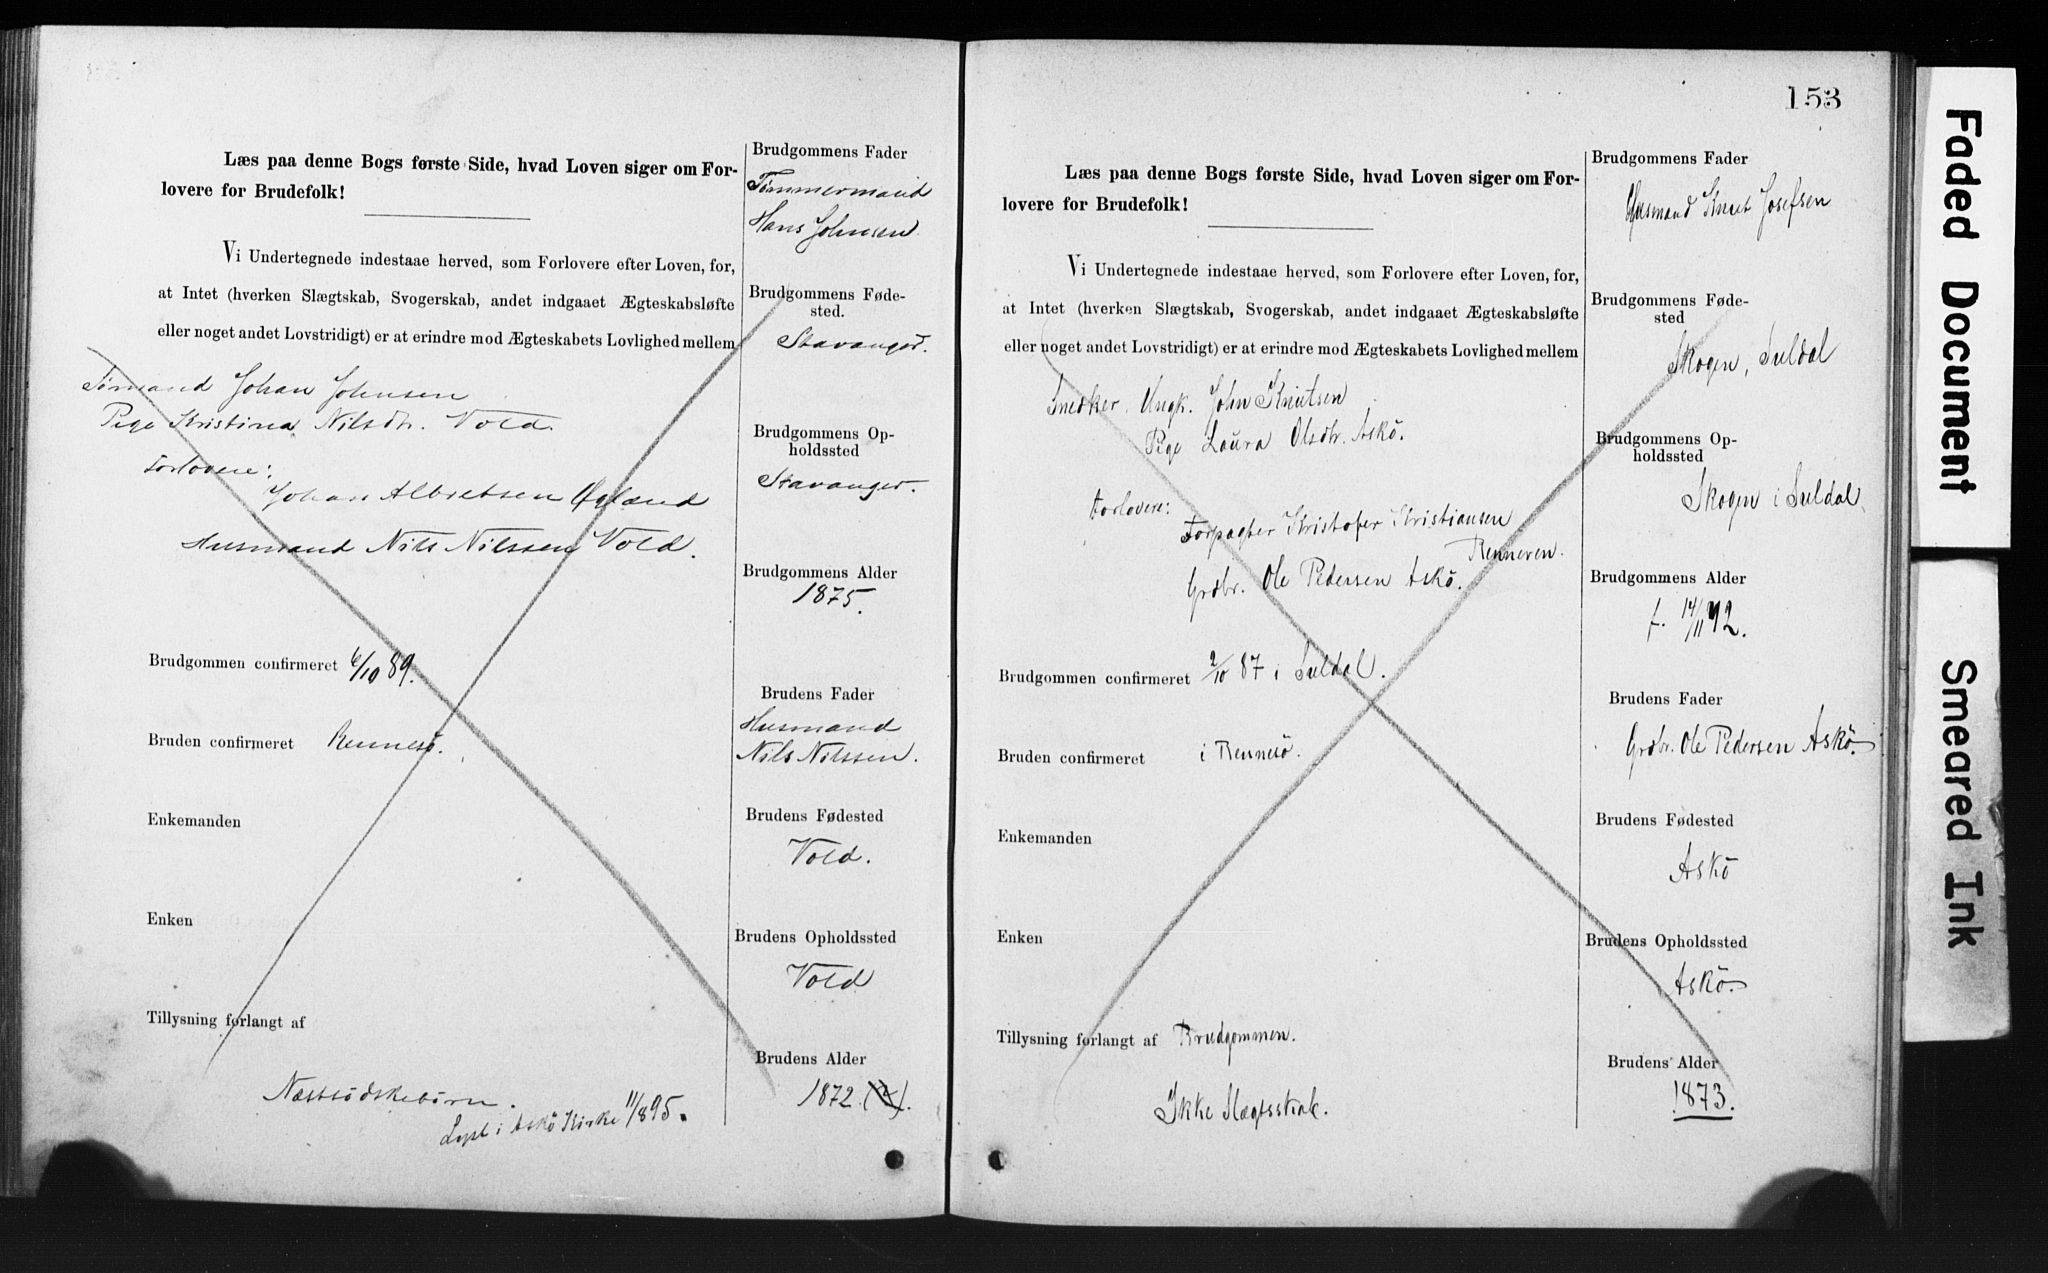 Læs paa denne Bogs første Side, hvad Loven siger om For-
lovere for Brudefolk!
Vi Undertegnede indestaae herved, som Forlovere efter Loven, for,
at Intet (hverken Slægtskab, Svogerskab, andet indgaaet Ægteskabsløfte
eller noget andet Lovstridigt) er at erindre mod Ægteskabets Lovlighed mellem
Tømand Johan Johnsen
Pige Kristina Nilsdtr. Vold.
Forlovere:
Johan Albretsen Øgland
Husmand Nils Nilssen Vold.
Brudgommen confirmeret 6/10 89.
Bruden confirmeret Rennesö.
Enkemanden
Enken
Tillysning forlangt af
Næstsödskebörn.
Lyst i Askö Kirke 11/8 95.
Brudgommens Fader
Tømmermand
Hans Johnsen.
Brudgommens Føde-
sted.
Stavanger.
Brudgommens Op-
holdssted
Stavanger.
Brudgommens Alder
1875.
Brudens Fader
Husmand
Nils Nilssen.
Brudens Fødested
Vold.
Brudens Opholdssted
Vold
Brudens Alder
1872.
153
Læs paa denne Bogs første Side, hvad Loven siger om For-
lovere for Brudefolk!
Vi Undertegnede indestaae herved, som Forlovere efter Loven, for,
at Intet (hverken Slægtskab, Svogerskab, andet indgaaet Ægteskabsløfte
eller noget andet Lovstridigt) er at erindre mod Ægteskabets Lovlighed mellem
Snedker, Ungk. John Knutsen
Pige Laura Olsdtr. Askö.
Forlovere:
Forpagter Kristofer Kristiansen
Renneren.
Grdbr. Ole Pedersen Askö.
Brudgommen confirmeret 2/10 87 i Suldal.
Bruden confirmeret i Rennesö.
Enkemanden
Enken
Tillysning forlangt af Brudgommen.
Ikke Slægtsskab.
Brudgommens Fader
Husmand Knut Josefsen
Brudgommens Føde-
sted
Skogen, Suldal
Brudgommens Op-
holdssted
Skogen i Suldal.
Brudgommens Alder
f. 14/11 72.
Brudens Fader
Grdbr. Ole Pedersen Askö.
Brudens Fødested
Askö
Brudens Opholdssted
Askö.
Brudens Alder
1873.
Faded Document
Smeared Ink